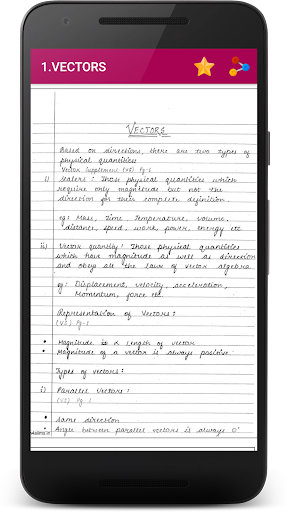 1.VECTORS
VECTORS
Based on directions, there are two types of
physical quantities
Vector Supplement (VS) Pg-1
i) Scalers : Those physical quantities which
require only magnitude but not the
direction for their complete definition.
eg: Mass, Time, Temperature, volume,
distance, speed, work, power, energy etc
ii) Vector quantity : Those physical quantities
which have magnitude as well as direction
and obeys all the law of vector algebra.
eg: Displacement, velocity, acceleration,
Momentum, force etc.
Representation of Vectors :
(VS) Pg-1
• Magnitude is α Length of vector
• Magnitude of a vector is always positive.
Types of vectors :
i) Parallel Vectors :
(VS) Pg 1
• same direction
• Angle between parallel vectors is always 0°